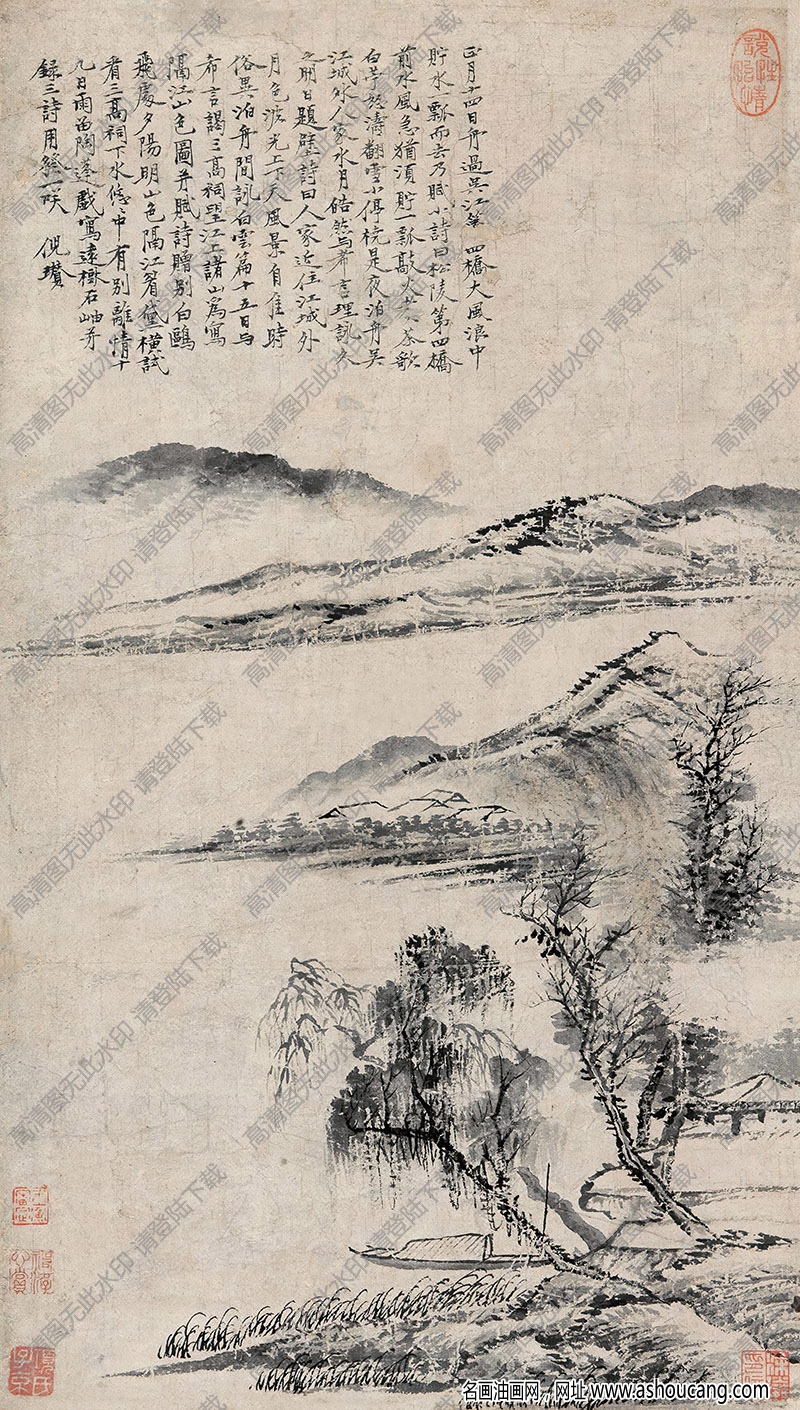 正月十四日舟過吳江第四橋大風浪中
貯水一瓢而去乃賦小詩曰松陵第四橋
前水風急猶須貯一瓢敲火煮茶歌
白苧怒濤翻雪小停橈是夜泊舟吳
江城外人家水月皓然與希言理詠久
之明日題壁詩曰人家近住江城外
月色波光上下天風景自佳時
俗異泊舟閒詠白雲篇十五日與
希言謁三高祠望江上諸山為寫
隔江山色圖并賦詩贈別白鷗
飛處夕陽明山色隔江眉黛橫試
看三高祠下水悠中有別離情十
九日雨留陶蓬戲寫遠樹石岫并
錄三詩用發一咲 倪瓚
項氏子京
名画油画网，网址 www.ashoucang.com
高清图无此水印 请登陆下载